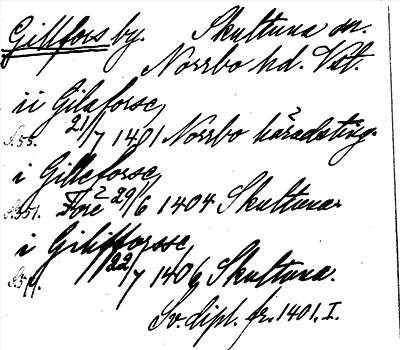 Gillfors by. Skultuna sn.
Norrbo hd. Vst.
ii Gilaforse
21/7 1401 Norrbo häradsting.
i Gilleforse
Före 29/6 1404 Skultuna.
i Gililforsse
22/7 1406 Skultuna.
Sv. dipl. fr. 1401. I.